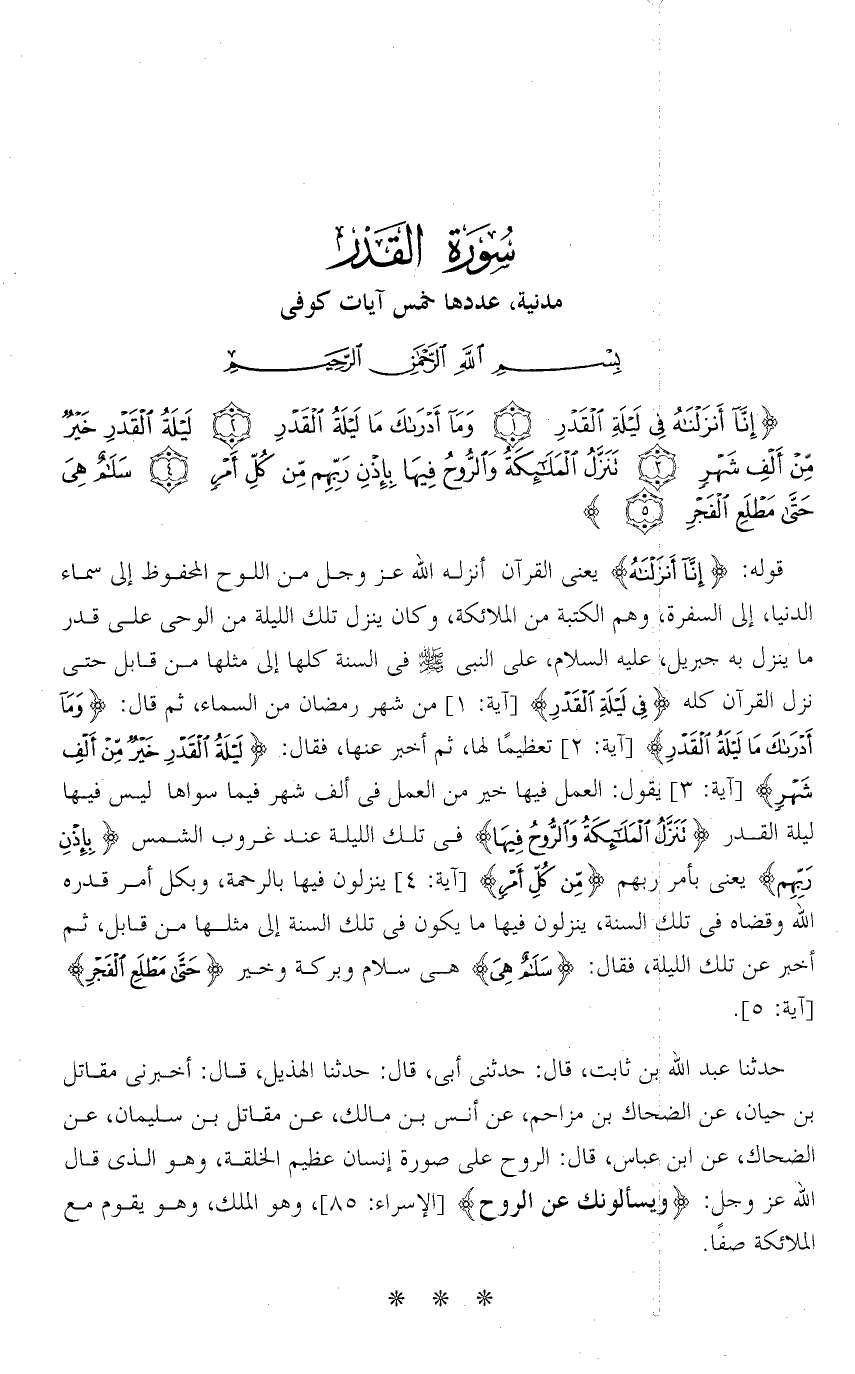 سُورَة القَدْر
مدنية، عددها خمس آيات كوفى
بِسْمِ اللَّهِ الرَّحْمَٰنِ الرَّحِيمِ
﴿ إِنَّآ أَنزَلْنَٰهُ فِى لَيْلَةِ ٱلْقَدْرِ ١ وَمَآ أَدْرَىٰكَ مَا لَيْلَةُ ٱلْقَدْرِ ٢ لَيْلَةُ ٱلْقَدْرِ خَيْرٌ
مِّنْ أَلْفِ شَهْرٍ ٣ تَنَزَّلُ ٱلْمَلَٰٓئِكَةُ وَٱلرُّوحُ فِيهَا بِإِذْنِ رَبِّهِم مِّن كُلِّ أَمْرٍ ٤ سَلَٰمٌ هِىَ
حَتَّىٰ مَطْلَعِ ٱلْفَجْرِ ٥ ﴾
قوله: ﴿ إِنَّآ أَنزَلْنَٰهُ ﴾ يعنى القرآن أنزله الله عز وجل من اللوح المحفوظ إلى سماء
الدنيا، إلى السفرة، وهم الكتبة من الملائكة، وكان ينزل تلك الليلة من الوحى على قدر
ما ينزل به جبريل، عليه السلام، على النبى ﷺ فى السنة كلها إلى مثلها من قابل حتى
نزل القرآن كله ﴿ فِى لَيْلَةِ ٱلْقَدْرِ ﴾ [آية: ١] من شهر رمضان من السماء، ثم قال: ﴿ وَمَآ
أَدْرَىٰكَ مَا لَيْلَةُ ٱلْقَدْرِ ﴾ [آية: ٢] تعظيمًا لها، ثم أخبر عنها، فقال: ﴿ لَيْلَةُ ٱلْقَدْرِ خَيْرٌ مِّنْ أَلْفِ
شَهْرٍ ﴾ [آية: ٣] يقول: العمل فيها خير من العمل فى ألف شهر فيما سواها ليس فيها
ليلة القدر ﴿ تَنَزَّلُ ٱلْمَلَٰٓئِكَةُ وَٱلرُّوحُ فِيهَا ﴾ فى تلك الليلة عند غروب الشمس ﴿ بِإِذْنِ
رَبِّهِم ﴾ يعنى بأمر ربهم ﴿ مِّن كُلِّ أَمْرٍ ﴾ [آية: ٤] ينزلون فيها بالرحمة، وبكل أمر قدره
الله وقضاه فى تلك السنة، ينزلون فيها ما يكون فى تلك السنة إلى مثلها من قابل، ثم
أخبر عن تلك الليلة، فقال: ﴿ سَلَٰمٌ هِىَ ﴾ هى سلام وبركة وخير ﴿ حَتَّىٰ مَطْلَعِ ٱلْفَجْرِ ﴾
[آية: ٥].
حدثنا عبد الله بن ثابت، قال: حدثنى أبى، قال: حدثنا الهذيل، قال: أخبرنى مقاتل
بن حيان، عن الضحاك بن مزاحم، عن أنس بن مالك، عن مقاتل بن سليمان، عن
الضحاك، عن ابن عباس، قال: الروح على صورة إنسان عظيم الخلقة، وهو الذى قال
الله عز وجل: ﴿ ويسألونك عن الروح ﴾ [الإسراء: ٨٥]، وهو الملك، وهو يقوم مع
الملائكة صفًا.
* * *